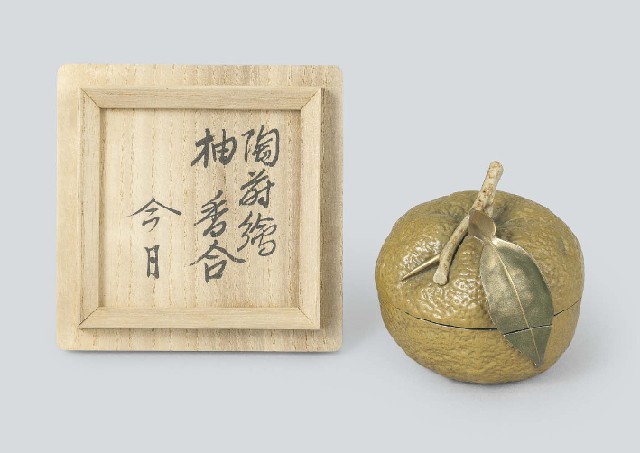 陶蒔繪
柚香合
今日